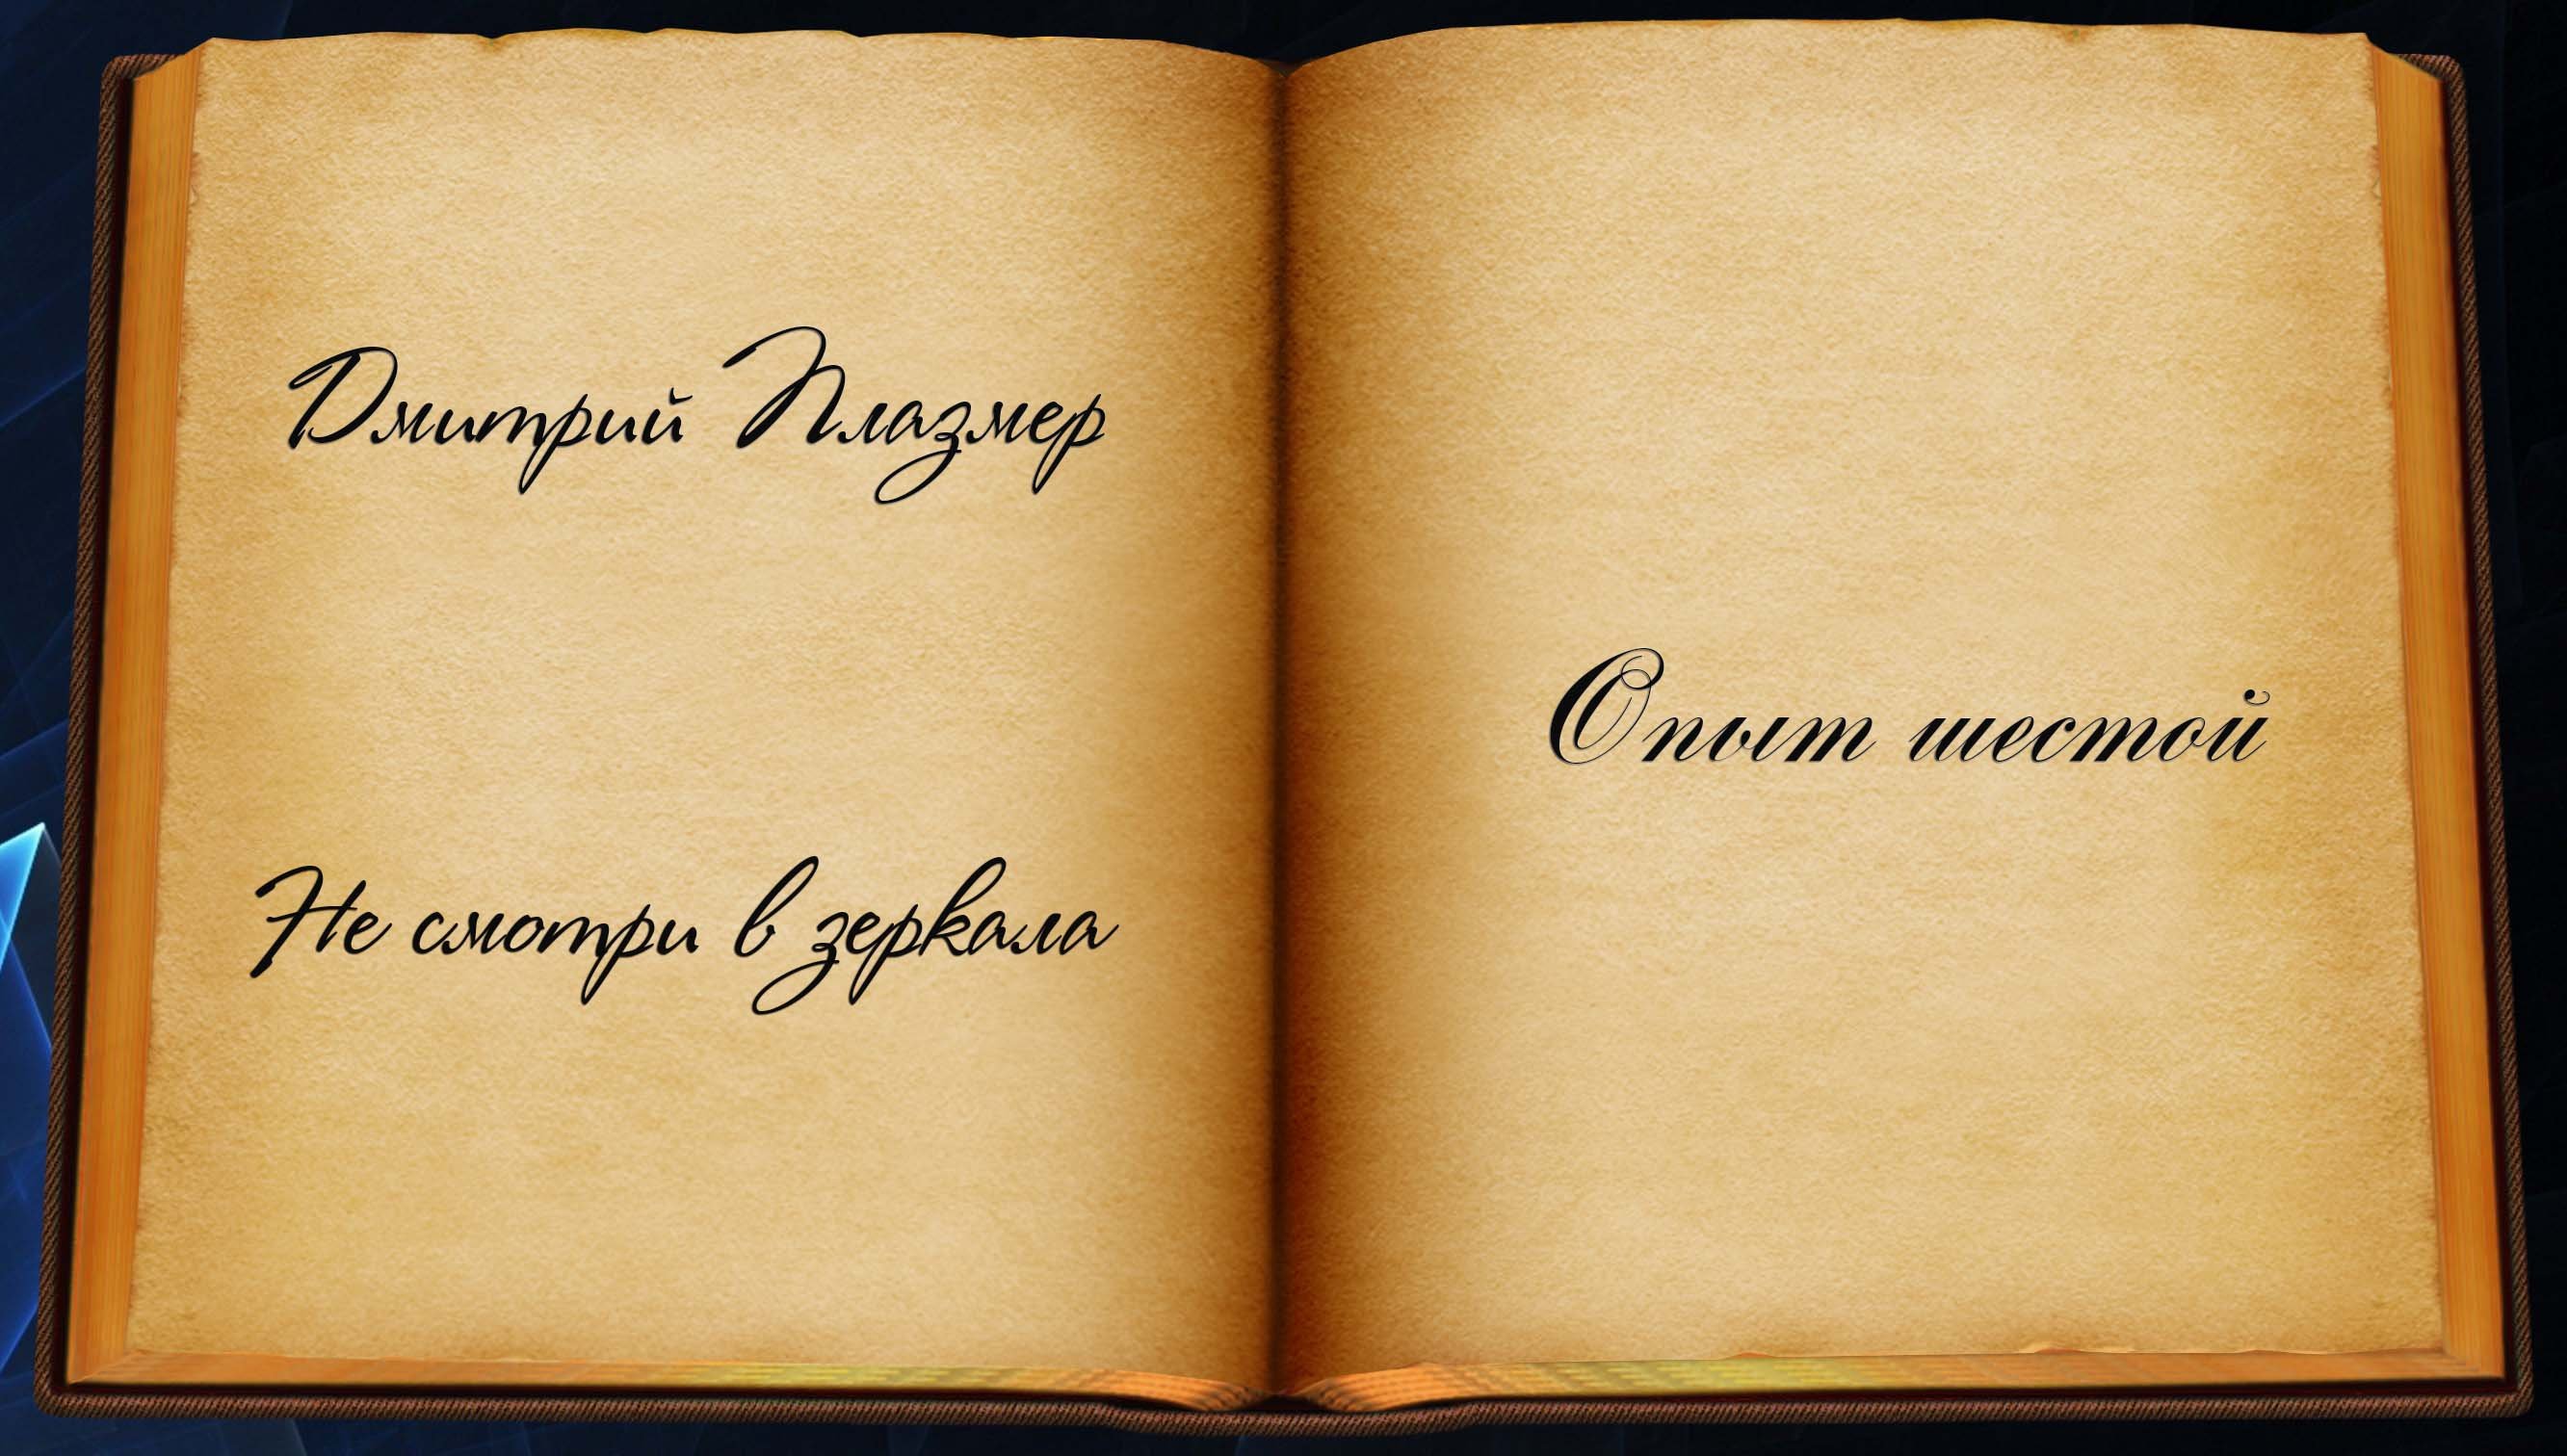 Дмитрий Плазмер
Не смотри в зеркала
Опыт шестой